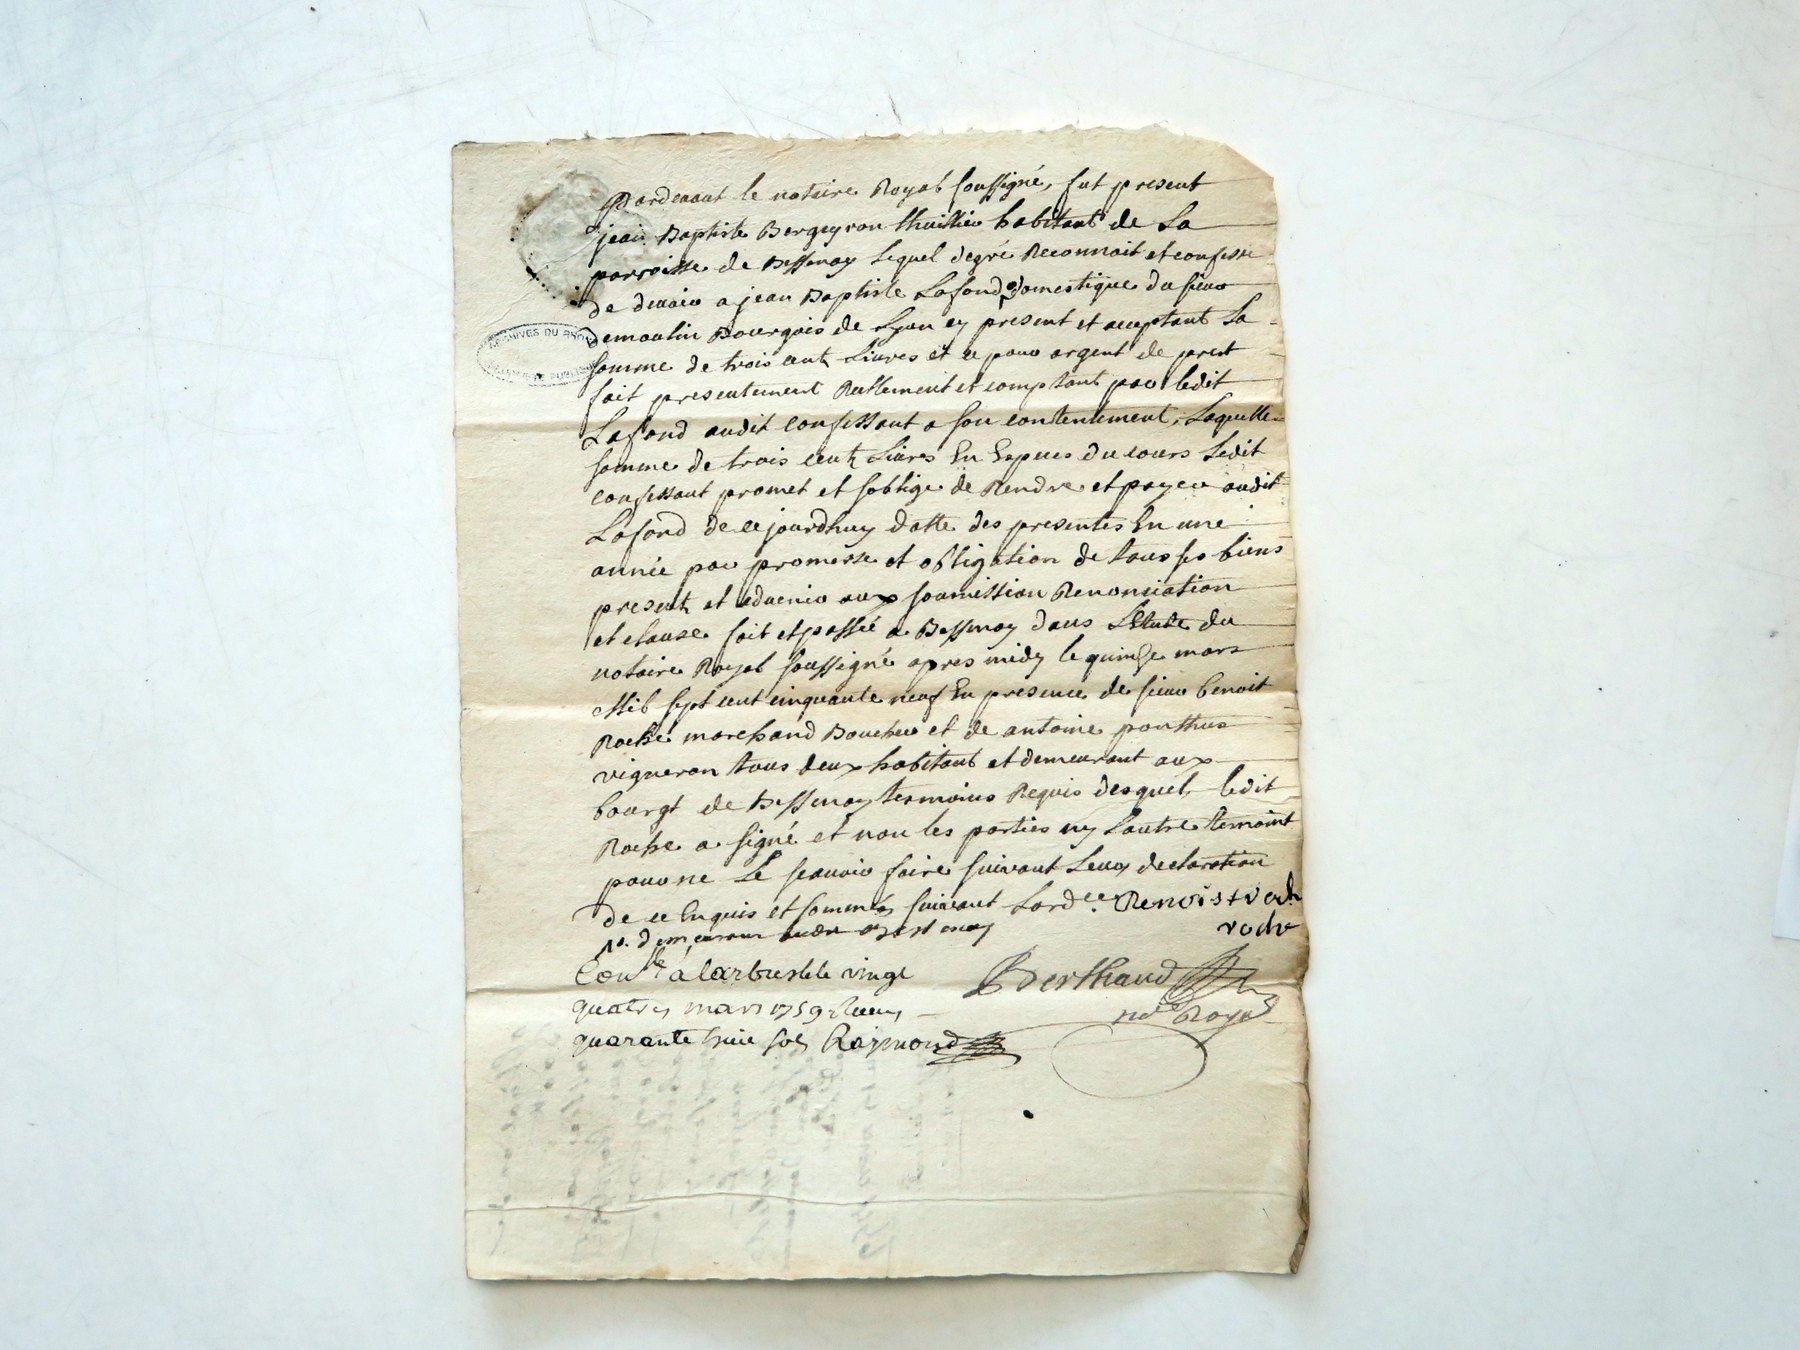 Pardevant le notaire Royal soussigné, fut present
jean Baptiste Bergeyron thuillier habitant de La
parroisse de Bessenay Lequel degré Reconnoit et confesse
de devoir a jean Baptiste Lafond domestique du sieur
demoulin Bourgois de Lyon cy present et acceptant La
somme de trois cent Livres et ce pour argent de prest
fait presentement Reellement et comptant par ledit
Lafond audit confessant a son contentement, Laquelle
somme de trois cent Livres En Especes du cours Ledit
confessant promet et soblige de Rendre et payer audit
Lafond de ce jourdhuy datte des presentes En une
année par promesse et obligation de tous ses biens
present et advenir aux soumission Renonciation
et clause fait et passé a Bessenay dans LEtude du
notaire Royal soussigné apres midy le quinze mars
Mil sept cent cinquante neuf En presence de sieur benoit
Roche marchand Boucher et de antoine ponthus
vigneron tous deux habitant et demeurant aux
bourgt de Bessenay tesmoins Requis desquel ledit
Roche a signé et non les parties ny Lautre temoint
pour ne Le scavoir faire suivant Leur declaration
de ce Enquis et sommés suivant Lord.ce Benoist
roche
Con.lé à larbresle le vingt
Berthaud
quatre mars 1759 Recu
no.re Royal
quarante huit sols Raymond
ARCHIVES DU RHONE